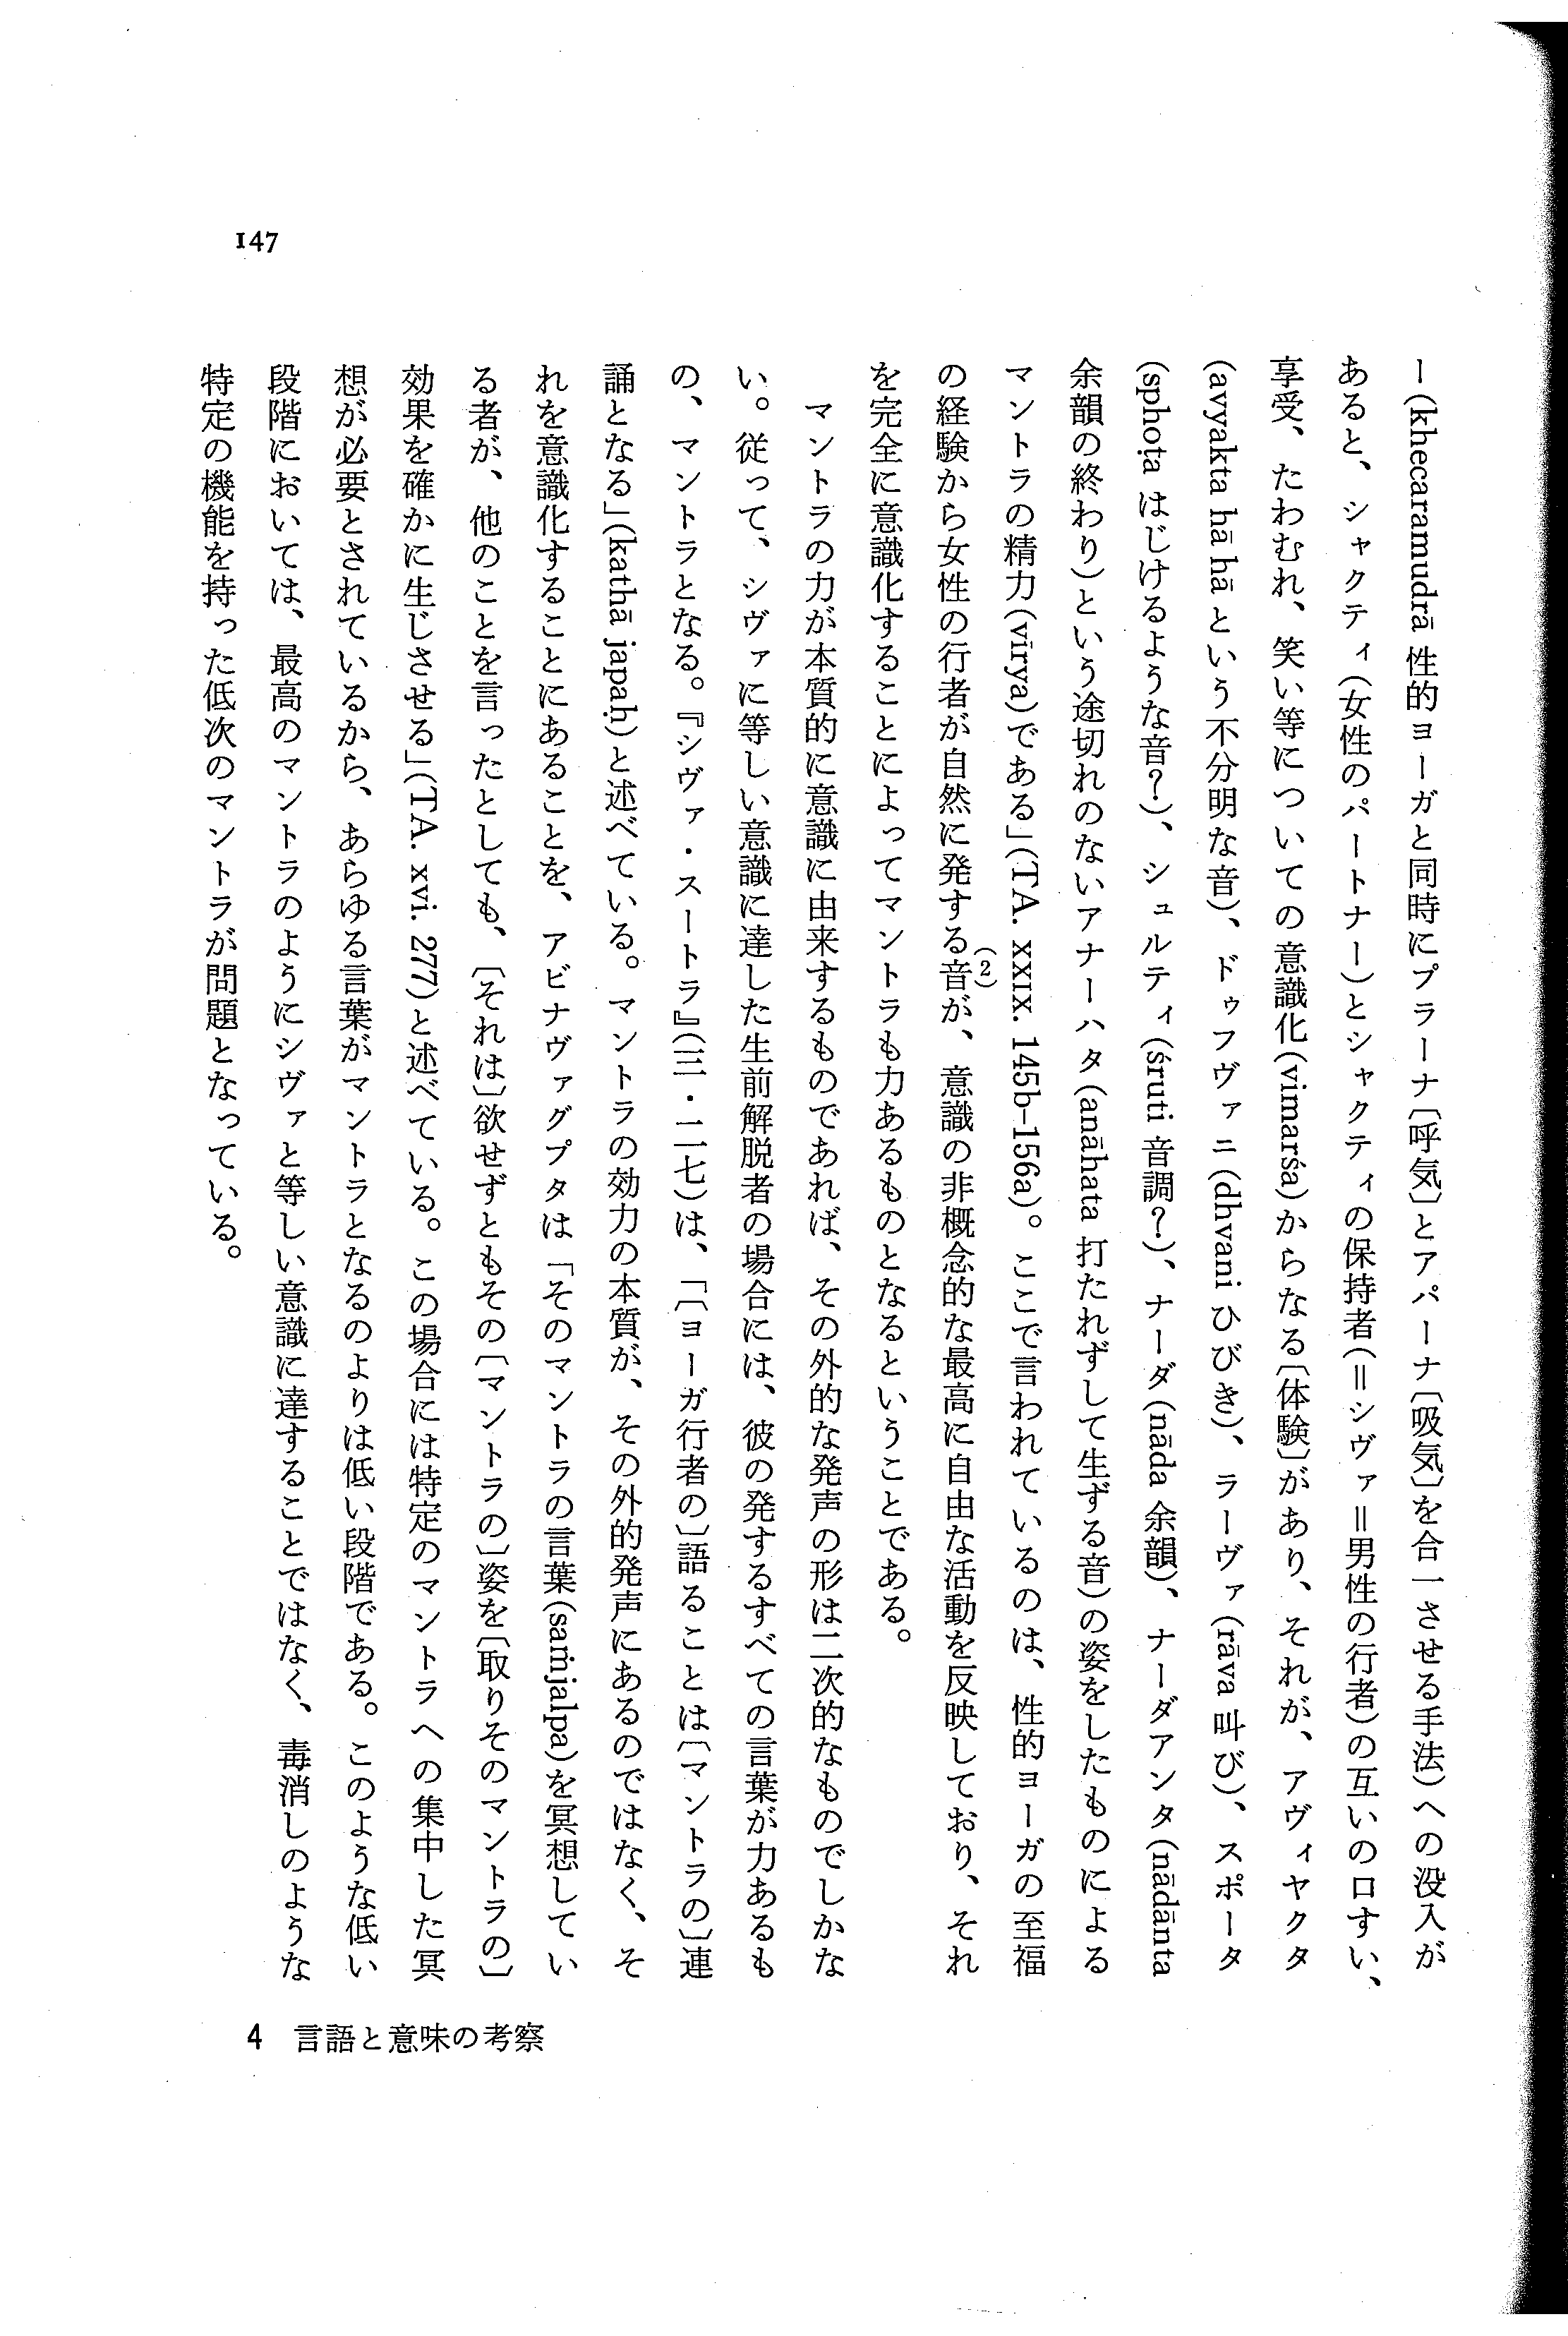 ー(khecaramudrā 性的ヨーガと同時にプラーナ〔呼気〕とアパーナ〔吸気〕を合一させる手法)への没入が
あると、シャクティ(女性のパートナー)とシャクティの保持者(＝シヴァ＝男性の行者)の互いの口すい、
享受、たわむれ、笑い等についての意識化(vimarśa)からなる〔体験〕があり、それが、アヴィヤクタ
(avyakta hā hā という不分明な音)、ドゥフヴァニ(dhvani ひびき)、ラーヴァ(rāva 叫び)、スポータ
(sphoṭa はじけるような音?)、シュルティ(śruti 音調?)、ナーダ(nāda 余韻)、ナーダアンタ(nādānta
余韻の終わり)という途切れのないアナーハタ(anāhata 打たれずして生ずる音)の姿をしたものによる
マントラの精力(vīrya)である」(TA. xxix. 145b–156a)。ここで言われているのは、性的ヨーガの至福
の経験から女性の行者が自然に発する音(2)が、意識の非概念的な最高に自由な活動を反映しており、それ
を完全に意識化することによってマントラも力あるものとなるということである。
マントラの力が本質的に意識に由来するものであれば、その外的な発声の形は二次的なものでしかな
い。従って、シヴァに等しい意識に達した生前解脱者の場合には、彼の発するすべての言葉が力あるも
の、マントラとなる。『シヴァ・スートラ』(三・二七)は、「〔ヨーガ行者の〕語ることは〔マントラの〕連
誦となる」(kathā japaḥ)と述べている。マントラの効力の本質が、その外的発声にあるのではなく、そ
れを意識化することにあることを、アビナヴァグプタは「そのマントラの言葉(saṁjalpa)を冥想してい
る者が、他のことを言ったとしても、〔それは〕欲せずともその〔マントラの〕姿を〔取りそのマントラの〕
効果を確かに生じさせる」(TA. xvi. 277)と述べている。この場合には特定のマントラへの集中した冥
想が必要とされているから、あらゆる言葉がマントラとなるのよりは低い段階である。このような低い
段階においては、最高のマントラのようにシヴァと等しい意識に達することではなく、毒消しのような
特定の機能を持った低次のマントラが問題となっている。
147
4 言語と意味の考察